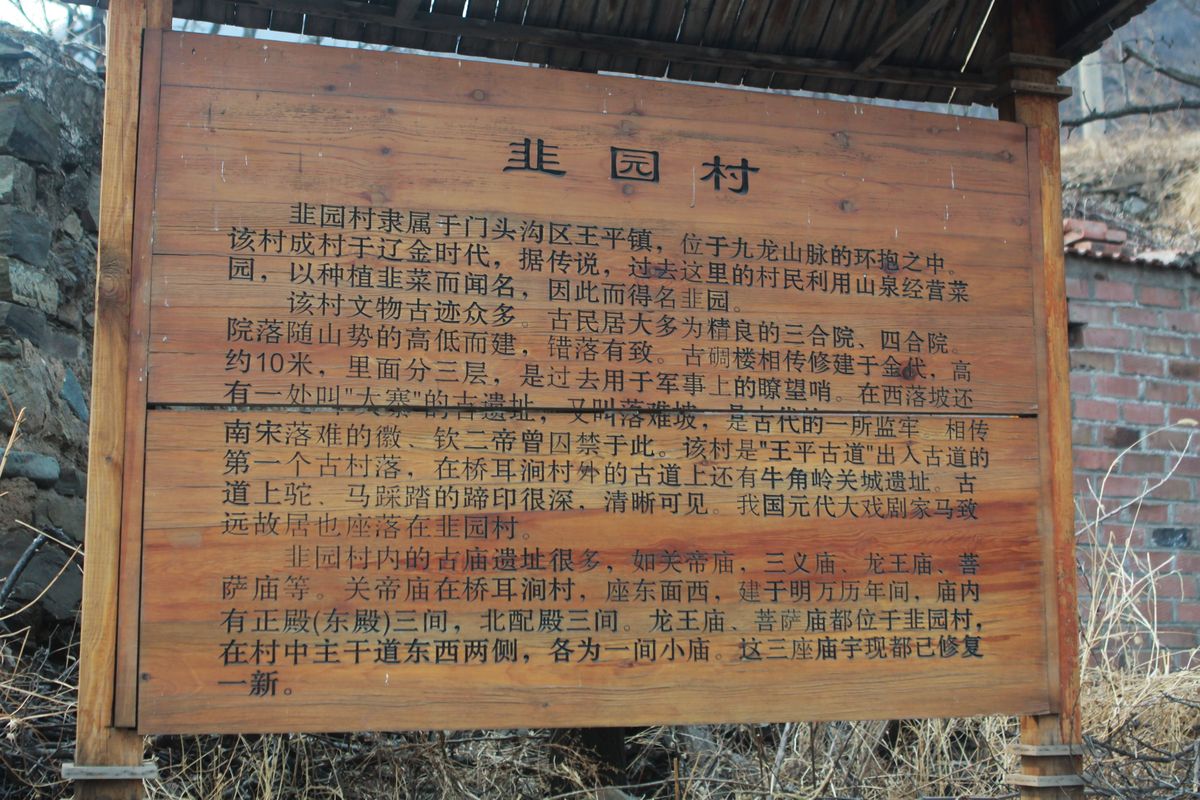 韭园村
韭园村隶属于门头沟区王平镇，位于九龙山脉的环抱之中。
该村成村于辽金时代，据传说，过去这里的村民利用山泉经营菜
园，以种植韭菜而闻名，因此而得名韭园。
该村文物古迹众多。古民居大多为精良的三合院、四合院。
院落随山势的高低而建，错落有致。古碉楼相传修建于金代，高
约10米，里面分三层，是过去用于军事上的瞭望哨。在西落坡还
有一处叫"大寨"的古遗址，又叫落难坡，是古代的一所监牢。相传
南宋落难的徽、钦二帝曾囚禁于此。该村是"王平古道"出入古道的
第一个古村落，在桥耳涧村外的古道上还有牛角岭关城遗址。古
道上驼、马踩踏的蹄印很深，清晰可见。我国元代大戏剧家马致
远故居也座落在韭园村。
韭园村内的古庙遗址很多，如关帝庙，三义庙、龙王庙、菩
萨庙等。关帝庙在桥耳涧村，座东面西，建于明万历年间，庙内
有正殿(东殿)三间，北配殿三间。龙王庙、菩萨庙都位于韭园村，
在村中主干道东西两侧，各为一间小庙。这三座庙宇现都已修复
一新。